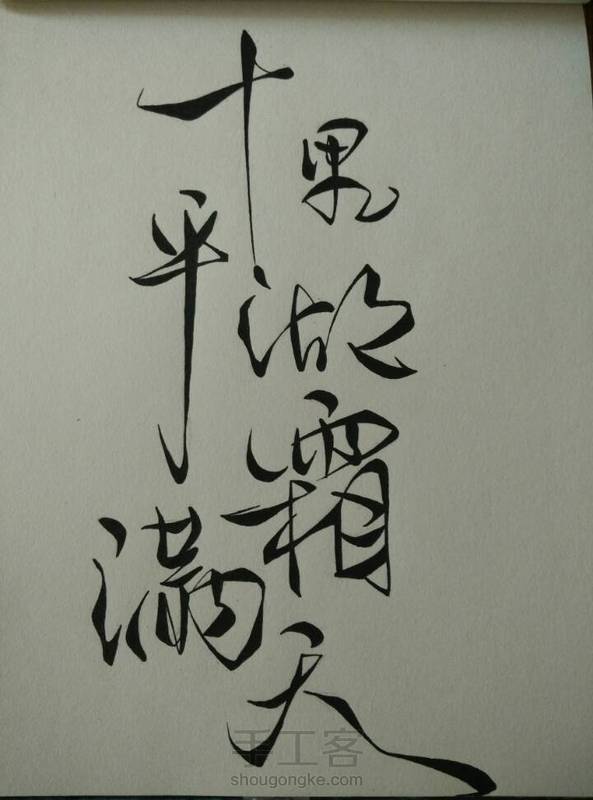 十里
平湖
霜
满天
手工客
shougongke.com